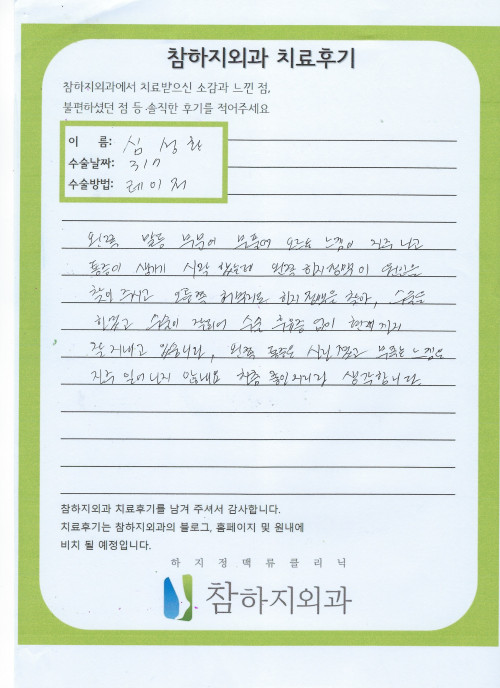 참하지외과 치료후기
참하지외과에서 치료받으신 소감과 느낀 점,
불편하셨던 점 등 솔직한 후기를 적어주세요
이 름: 심 성 환
수술날짜: 317
수술방법: 레이저
왼쪽 발등 부분이 느낌이 자주 나고
통증이 생기기 시작 왼쪽 하지정맥이 원인을
찾아 주시고 오른쪽 하지정맥을 찾아, 수술을
하였고 수술이 잘되어 수술 후유증 없이 현재까지
잘 지내고 있습니다, 왼쪽 통증은 붓는 느낌은
자주 일어나지 않네요 차츰 좋아지리라 생각합니다
참하지외과 치료후기를 남겨 주셔서 감사합니다.
치료후기는 참하지외과의 블로그, 홈페이지 및 원내에
비치 될 예정입니다.
하지정맥류클리닉
참하지외과